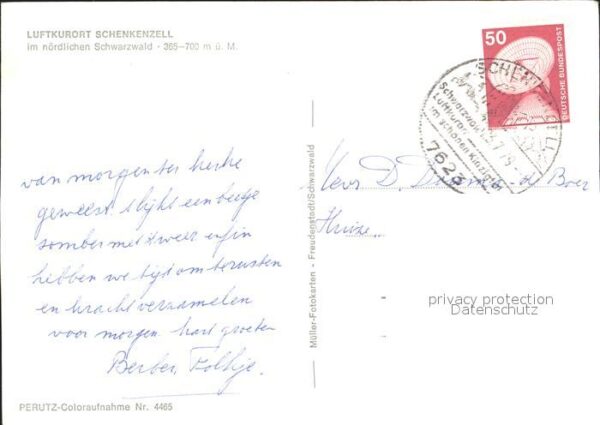 LUFTKURORT SCHENKENZELL
im nördlichen Schwarzwald · 365–700 m ü. M.
50
DEUTSCHE BUNDESPOST
Schwarzwald
Luftkurort
im schönen Kinzigtal
7623
van morgen ter kerke
geweest. t lijkt een beetje
somber met t weer enfin
hebben we tijd om te rusten
en kracht verzamelen
voor morgen hart groeten
Berber, Folkje.
PERUTZ-Coloraufnahme Nr. 4465
Müller-Fotokarten - Freudenstadt/Schwarzwald
D. de Boer
Huize
privacy protection
Datenschutz